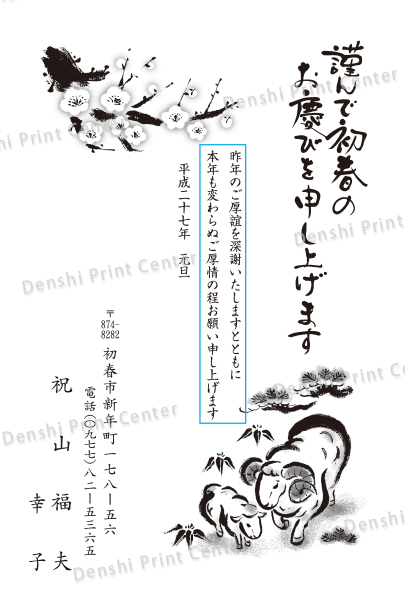 謹んで初春の
お慶びを申し上げます
昨年のご厚誼を深謝いたしますとともに
本年も変わらぬご厚情の程お願い申し上げます
平成二十七年 元旦
〒874-8282
初春市新年町一七八ー五六
電話(〇九七七)八二ー五三六五
祝山福夫
幸子
Denshi Print Center
Denshi Print Center
Denshi Print Center
Denshi Print Center
Denshi Print Center
Denshi Print Center
Denshi Print Center
Denshi Print Center
Denshi Print Center